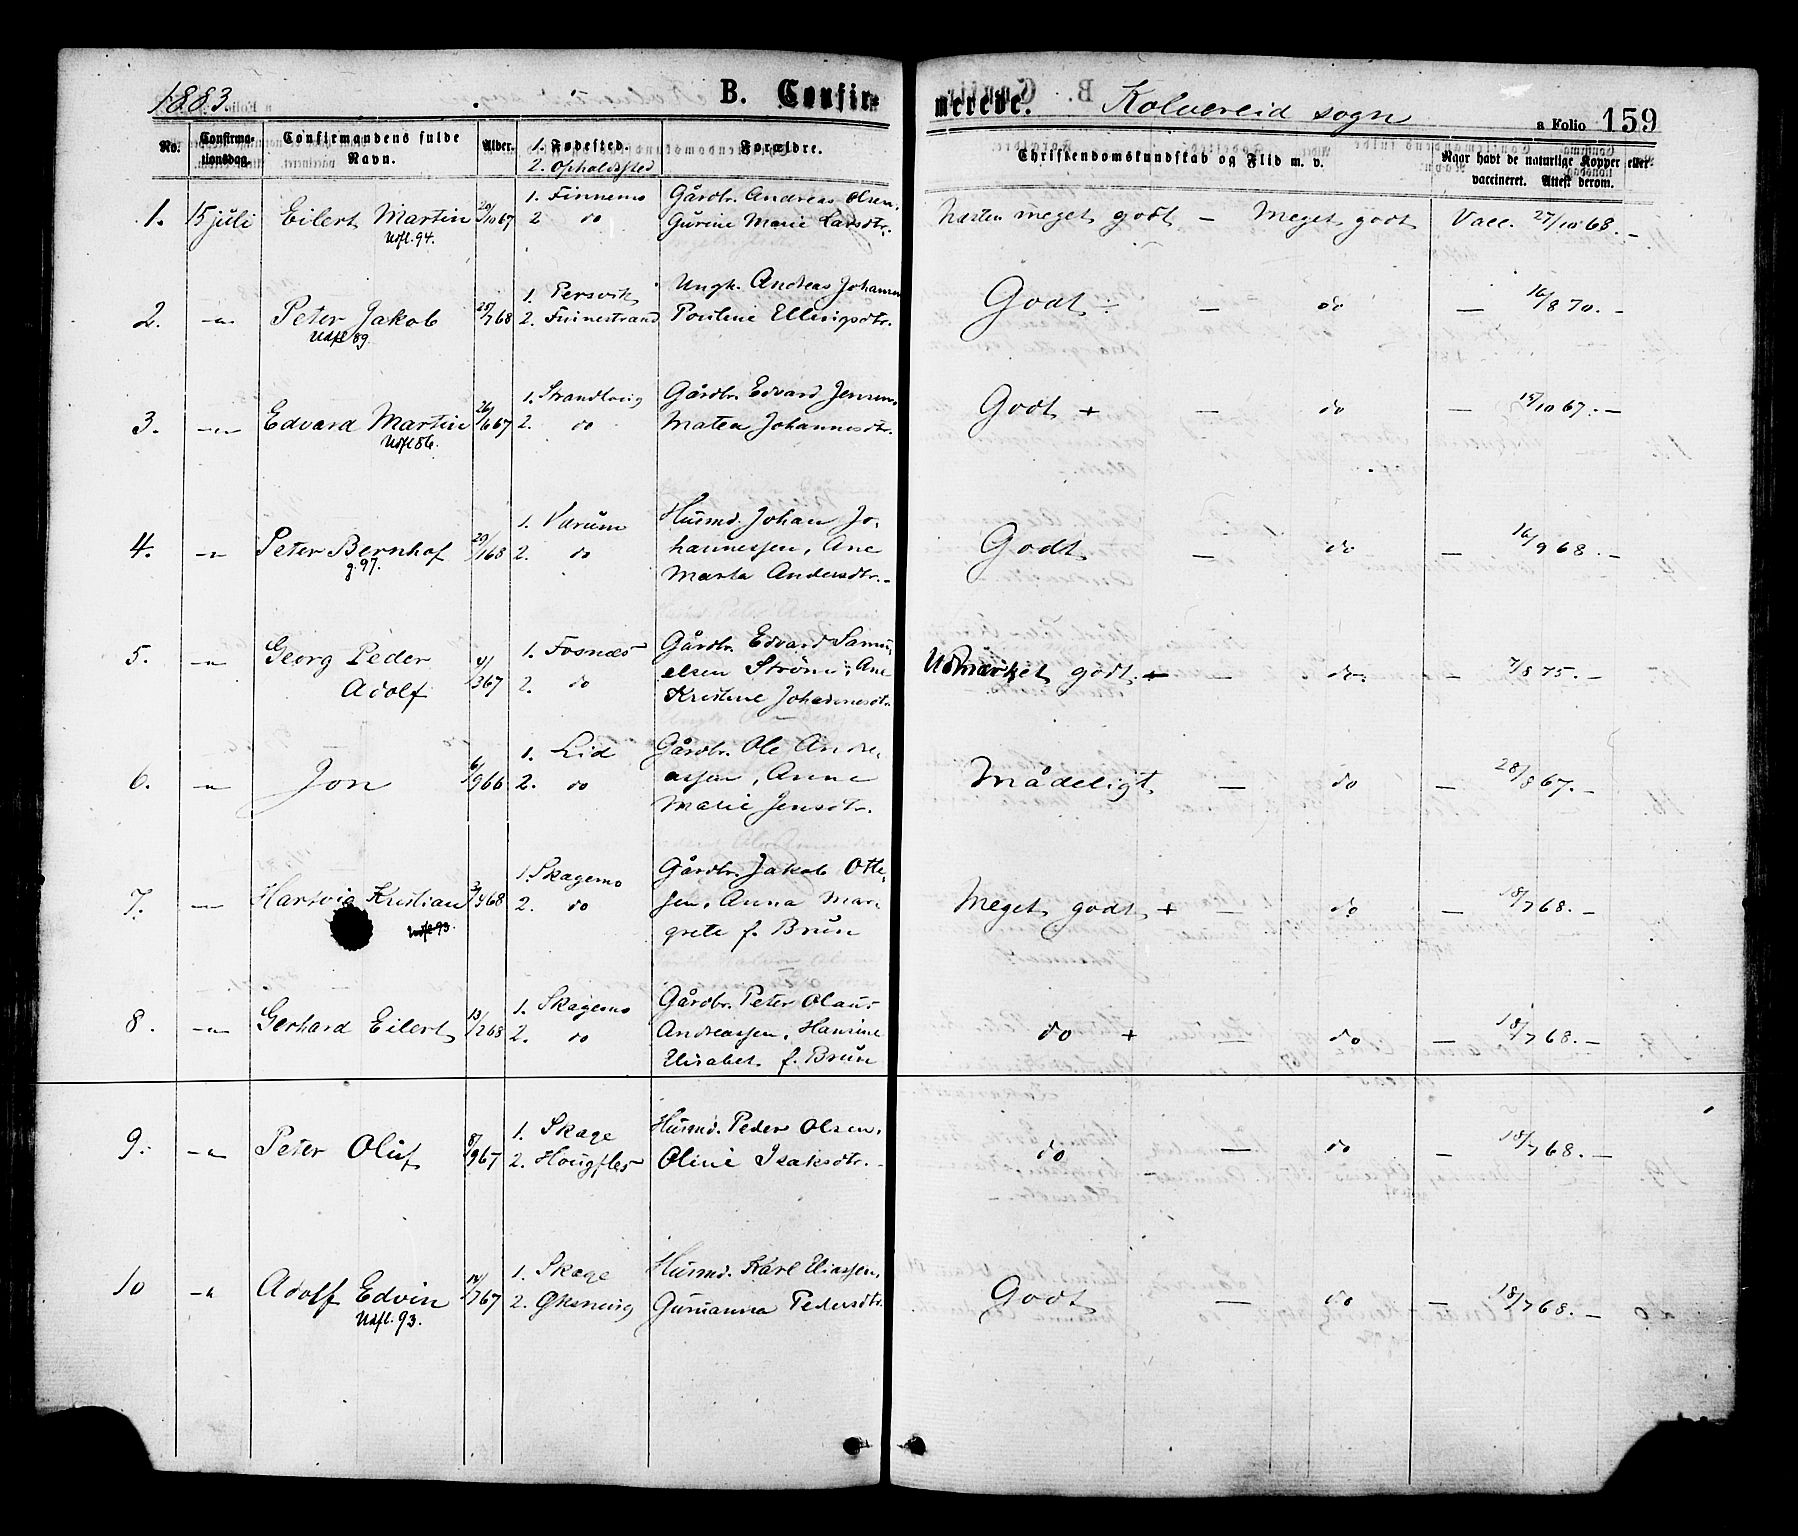 1883. B. Confirmerede. Kolvereid sogn a Folio 159
No. Confirmationsdag. Confirmandens fulde Navn. Alder. 1. Fødested. 2. Opholdssted Forældre. Christendomskundskab og Flid m. v. Naar havt de naturlige Kopper eller vaccineret. Attest derom.
1. 15 juli Eilert Martin 29/10 67 1. Finnemo Gårdbr. Andreas Olsen, Næsten meget godt — Meget godt Vacc. 27/10 68. —
Udfl. 94. 2 do Gurine Marie Larsdtr.
2. —"— Peter Jakob 25/7 68 1. Persvik Ungk. Andreas Johansen Godt ÷ — do — 16/8 70. —
Udfl 89. 2. Finnestrand Pouline Ellingsdtr.
3. —"— Edvard Martin 26/6 67 1. Strandveig Gårdbr. Edvard Jensen, Godt + — do — 15/10 67. —
Udfl 86. 2. do Matea Johannesdtr.
4. —"— Peter Bernhof 29/1 68 1. Varum Husmd. Johan Jo-
g. 97. 2. do hannessen, Ane Godt — do — 16/9 68. —
Marta Andersdtr. —
5. —"— Georg Peder 4/3 67 1. Fosnæs Gårdbr. Edvard Samu-
Adolf 2. do elsen Strøm, Ane Udmærket godt. + — do — 7/8 75. —
Kristine Johannesdtr.
6. —"— Jon 6/9 66 1. Lid Gårdbr. Ole Andre-
2. do assen, Anne Mådeligt — do — 28/8 67. —
Marie Jensdtr.
7. —"— Hartvig Kristian 3/4 68 1. Skagemo Gårdbr. Jakob Otte-
Udfl 93. 2. do sen, Anna Mar- Meget godt + — do — 18/7 68. —
grete f. Brun
8. —"— Gerhard Eilert 13/2 68 1. Skagemo Gårdbr. Peter Olaus
2. do Andreassen, Hansine do + — do — 18/7 68. —
Elisabet f. Brun
9. —"— Peter Oluf 8/9 67 1. Skage Husmd. Peder Olsen, do — do — 18/7 68. —
2. Hougfles Oline Isaksdtr. —
10 —"— Adolf Edvin 14/7 67 1. Skage Husmd. Karl Eliassen, Godt — do — 18/7 68. —
Udfl. 93. 2. Øksning Gurianna Pedersdtr.